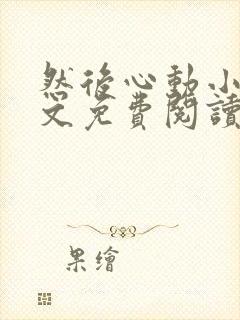 然後心動小
文免費閱讀
果繪